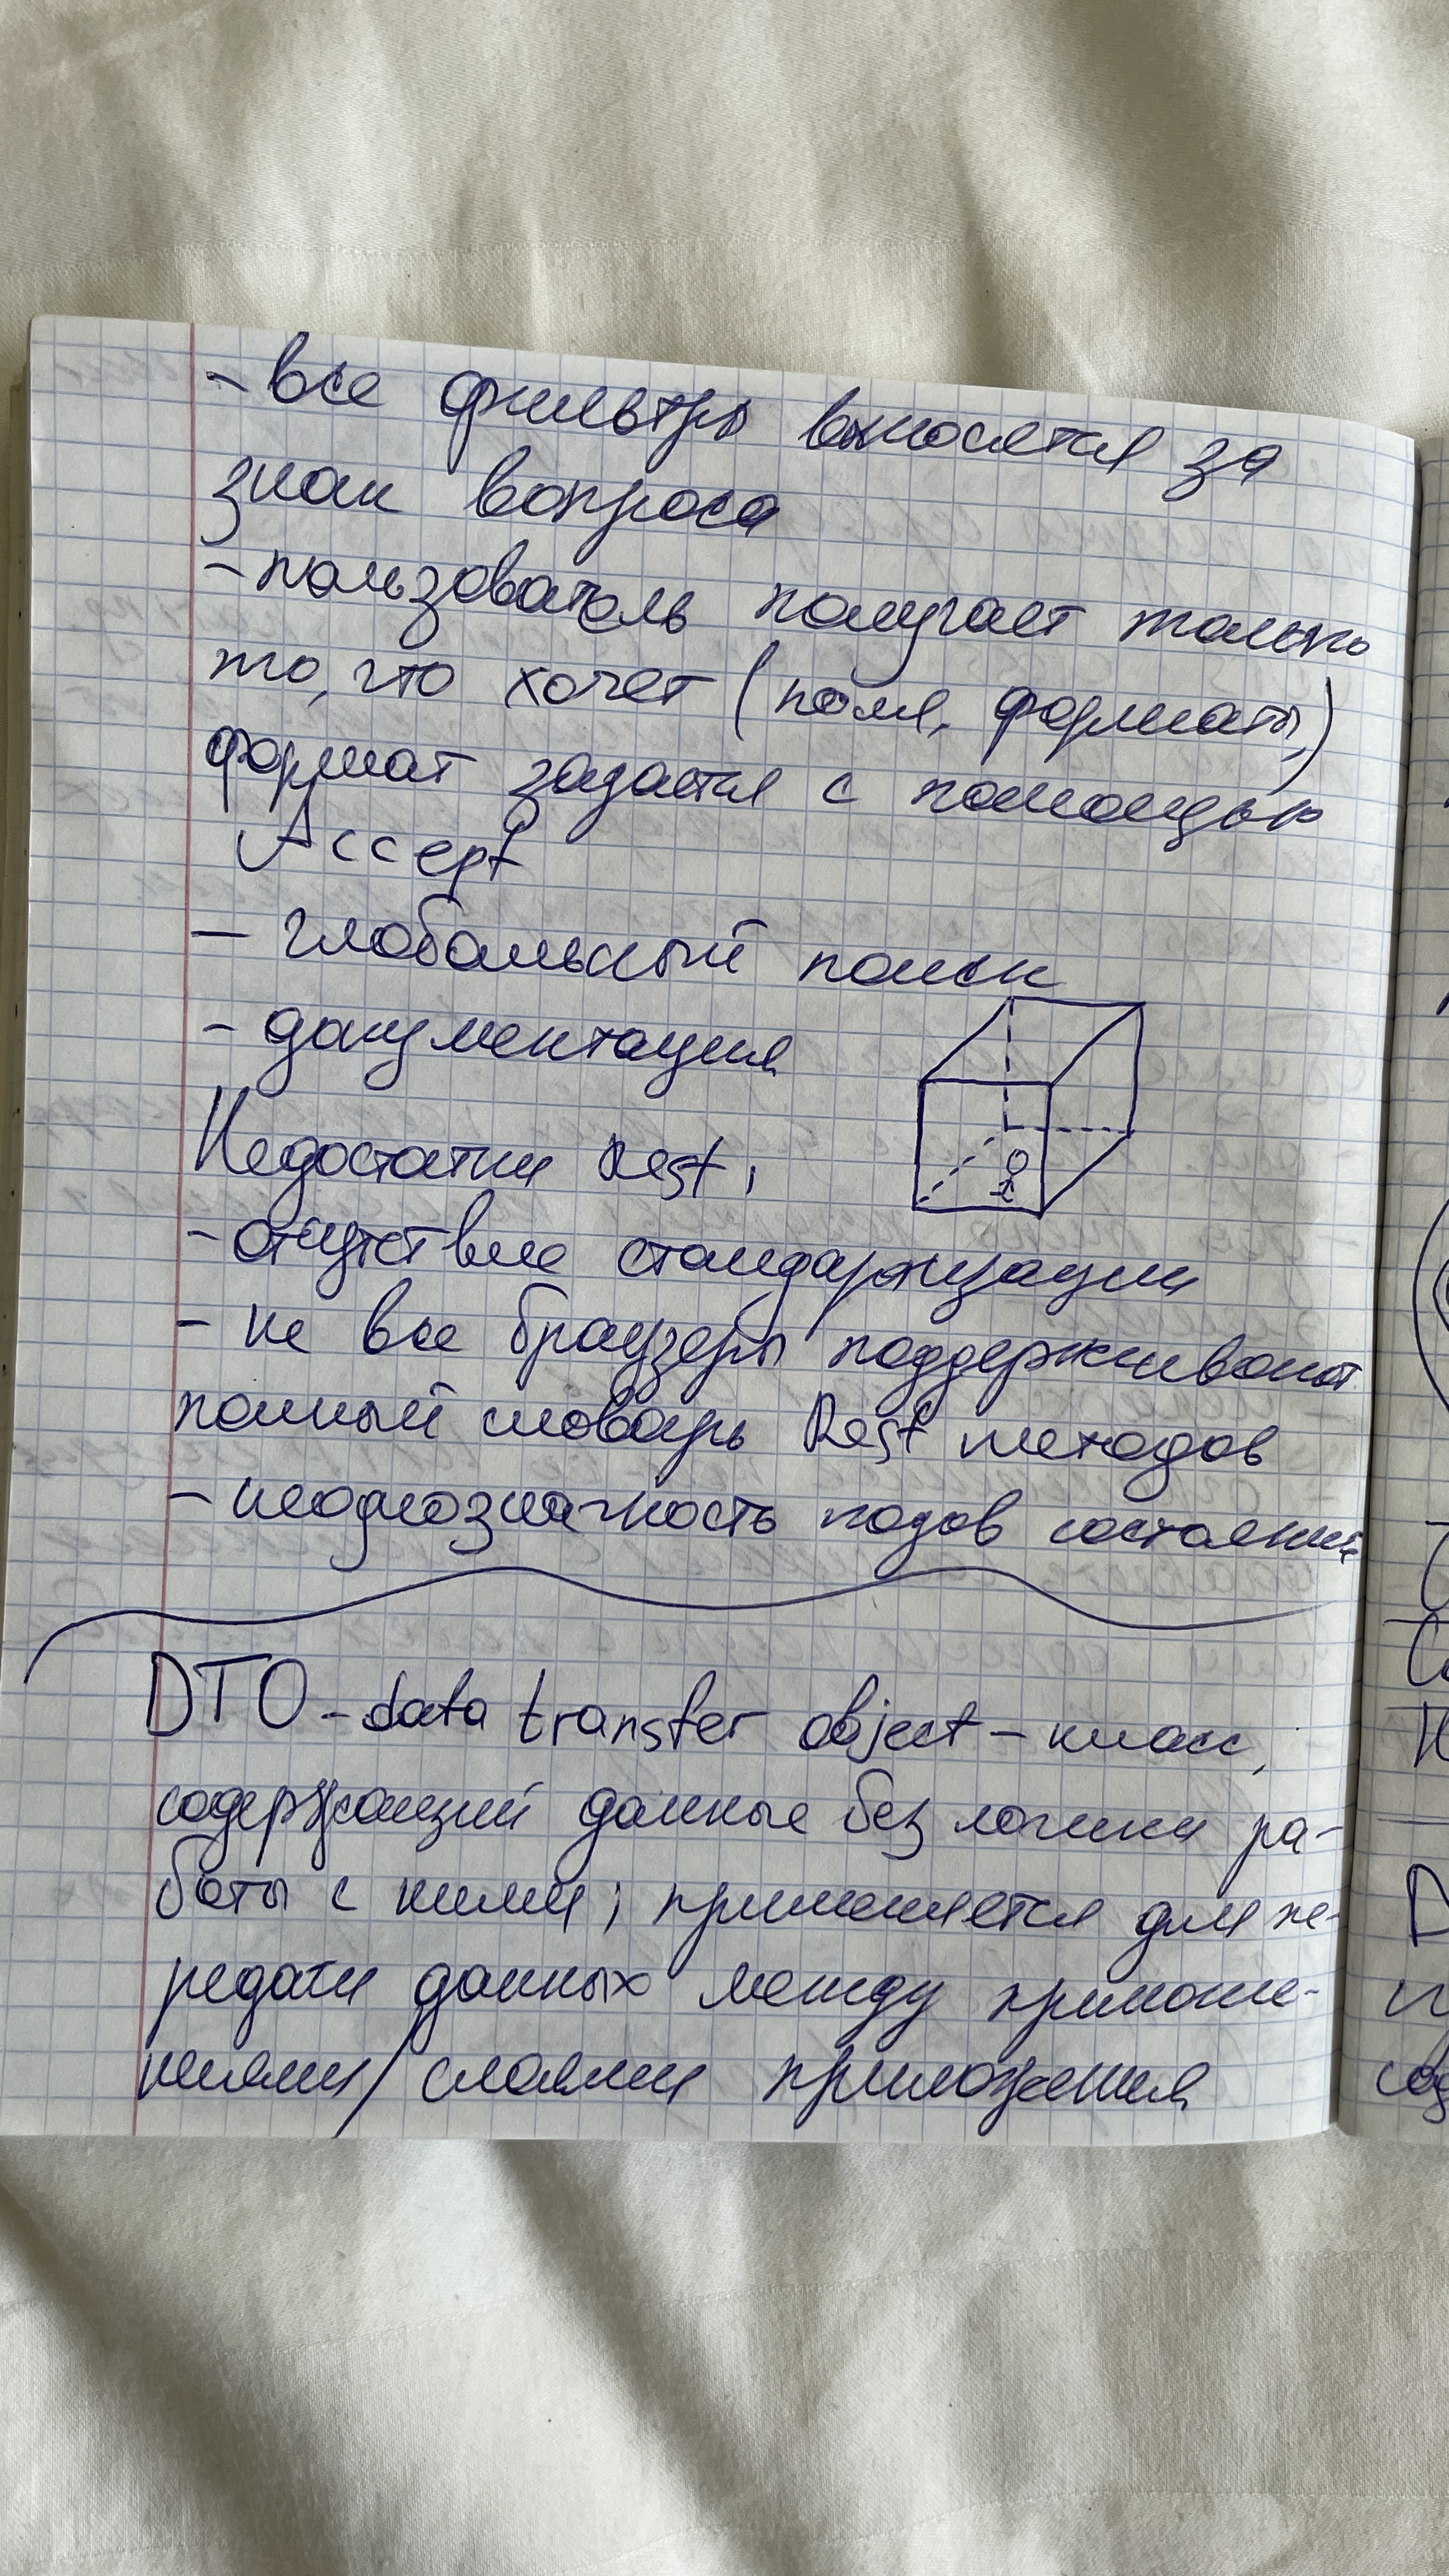 - все фильтры выносятся за
знак вопроса
- пользователь получает только
то, что хочет (поля, форматы,)
формат задается с помощью
Accept
- глобальный поиск
- документация
Недостатки Rest:
- отсутствие стандартизации
- не все браузеры поддерживают
полный словарь Rest методов
- неоднозначность кодов состояния
DTO - data transfer object - класс,
содержащий данные без логики ра-
боты с ними; применяется для пе-
редачи данных между приложе-
ниями/слоями приложения